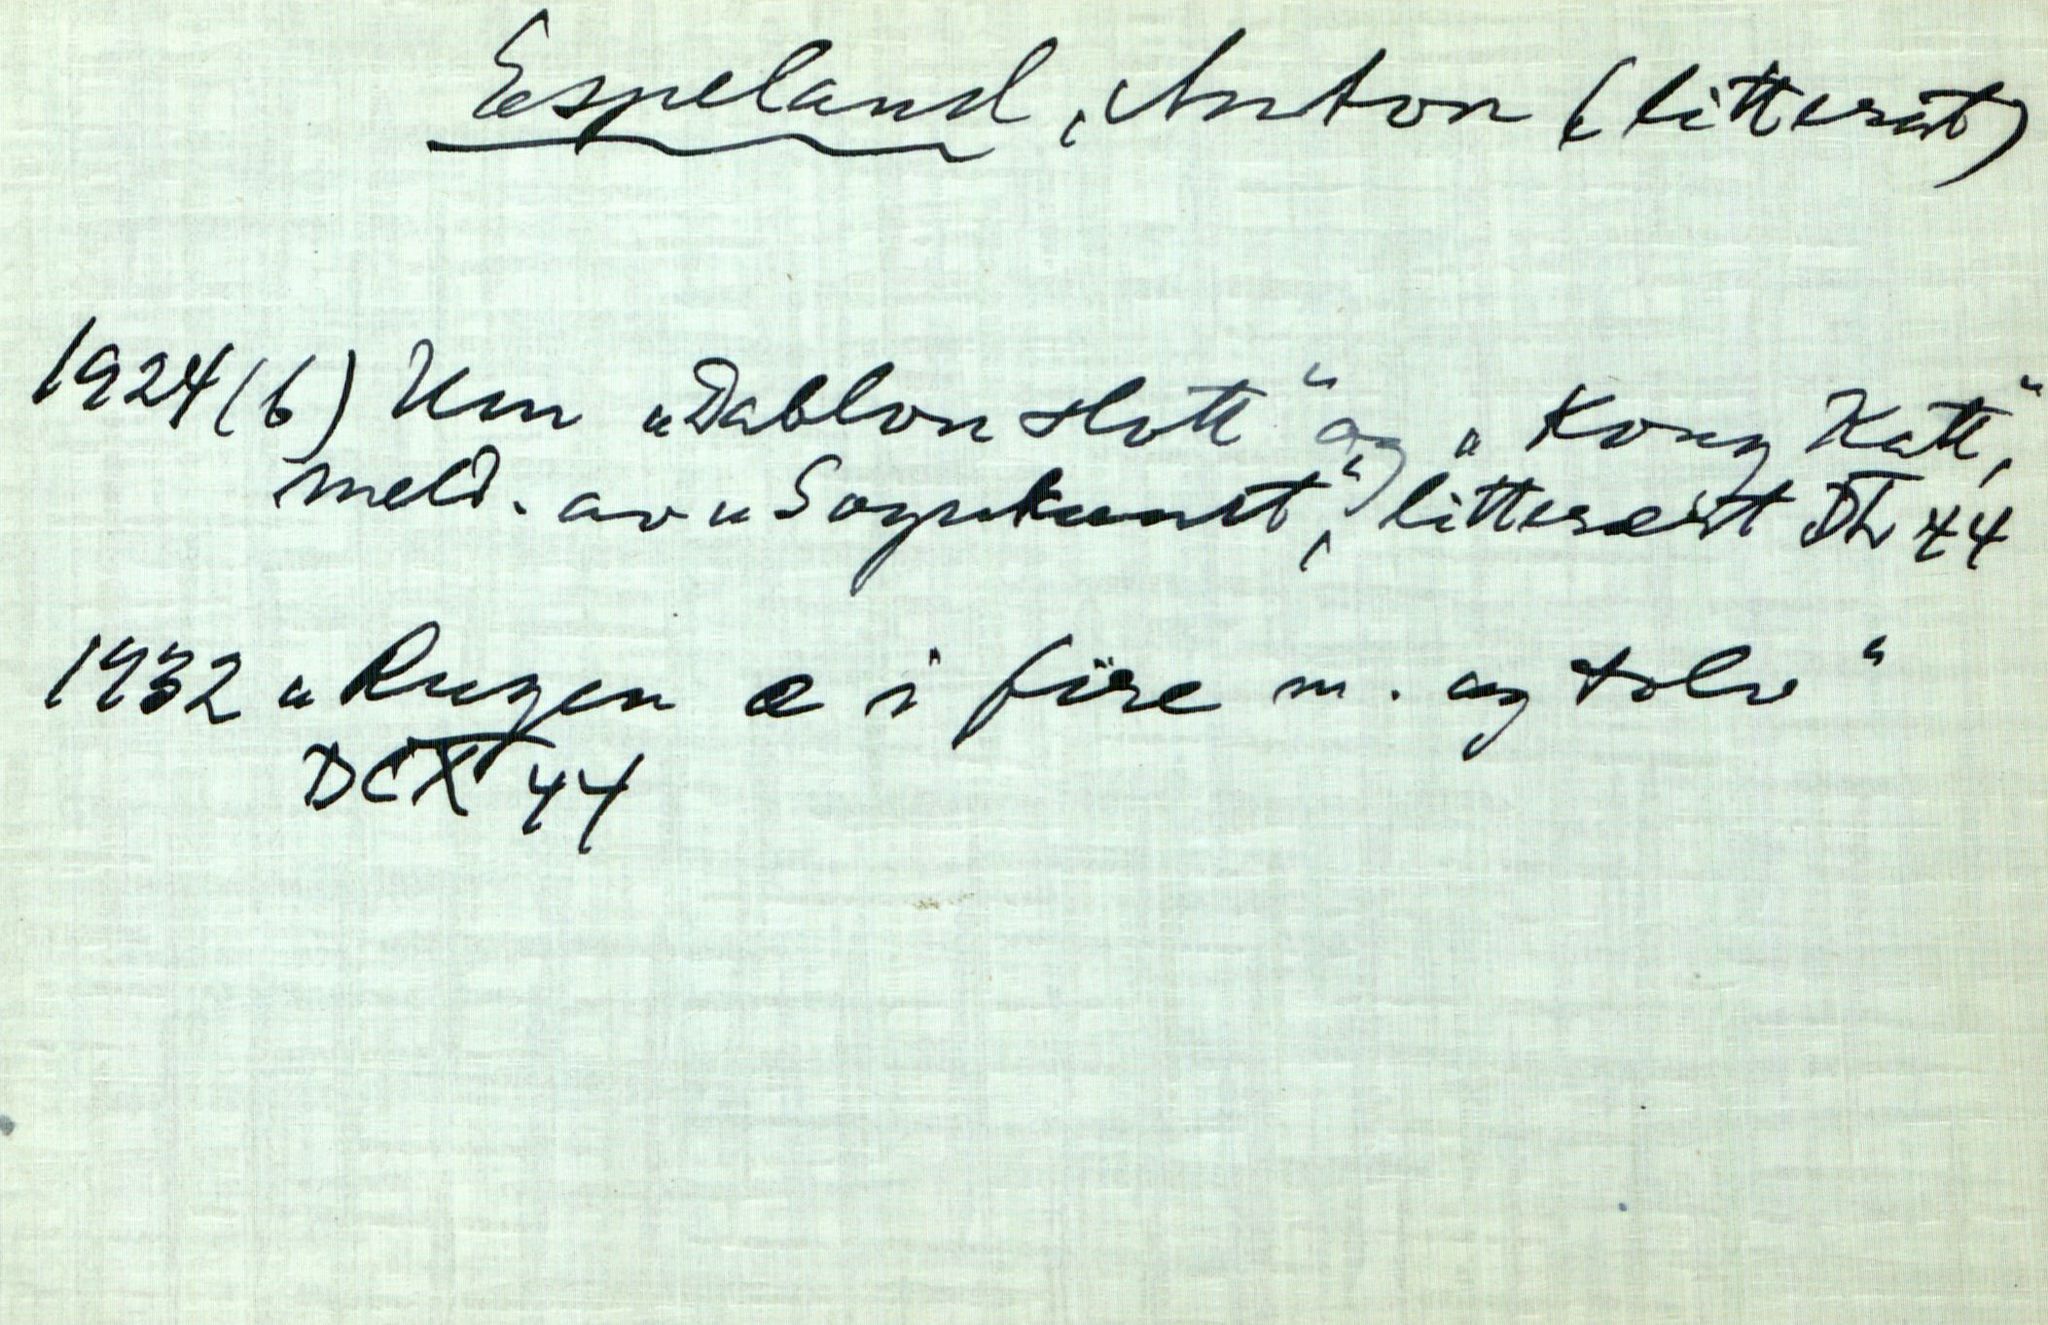 Espeland, Anton (litterat)
1924(6) Um „Dablon slott“ og „Kong Katt“,
meld. av „Sogukunst“, litterært 44
1932 „Rugen e i fire m. og tolv“
DCX 44